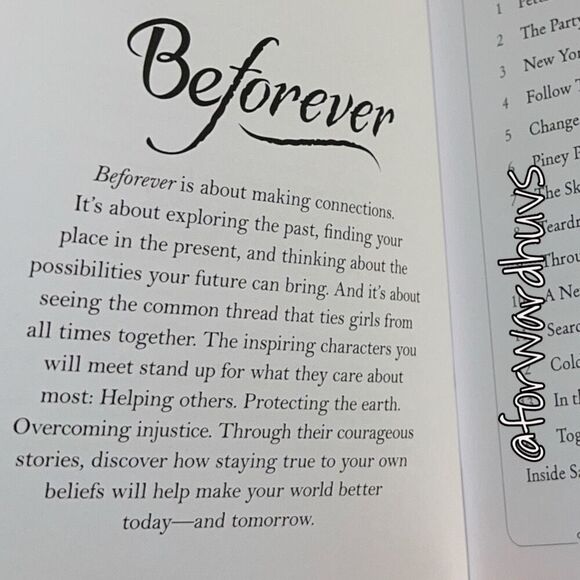 Beforever
Beforever is about making connections.
It's about exploring the past, finding your
place in the present, and thinking about the
possibilities your future can bring. And it's about
seeing the common thread that ties girls from
all times together. The inspiring characters you
will meet stand up for what they care about
most: Helping others. Protecting the earth.
Overcoming injustice. Through their courageous
stories, discover how staying true to your own
beliefs will help make your world better
today—and tomorrow.
1
2 The Party
3 New Yor
4 Follow T
5 Change
6 Piney P
7 The Sk
8 Teardr
Throu
A Ne
Searc
Colo
In th
Tog
Inside Sa
@forwardhuvs